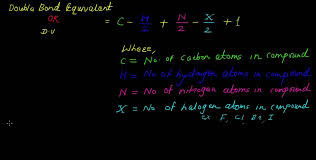 Double Bond Equivalent = C - H/2 + N/2 - X/2 + 1
OR
D.U
Where,
C = No. of carbon atoms in compound
H = No. of hydrogen atoms in compound
N = No of nitrogen atoms in compound
X = No of halogen atoms in compound
F, Cl, Br, I